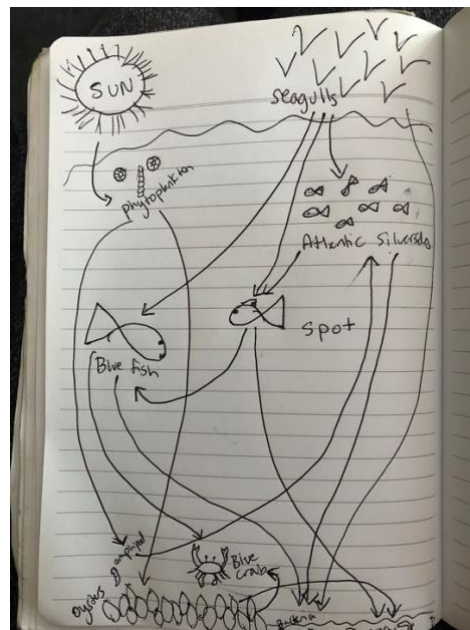 SUN
seagulls
phytoplankton
Atlantic Silversides
Spot
Blue fish
amphipod
Blue
Crab
Oysters
Bacteria